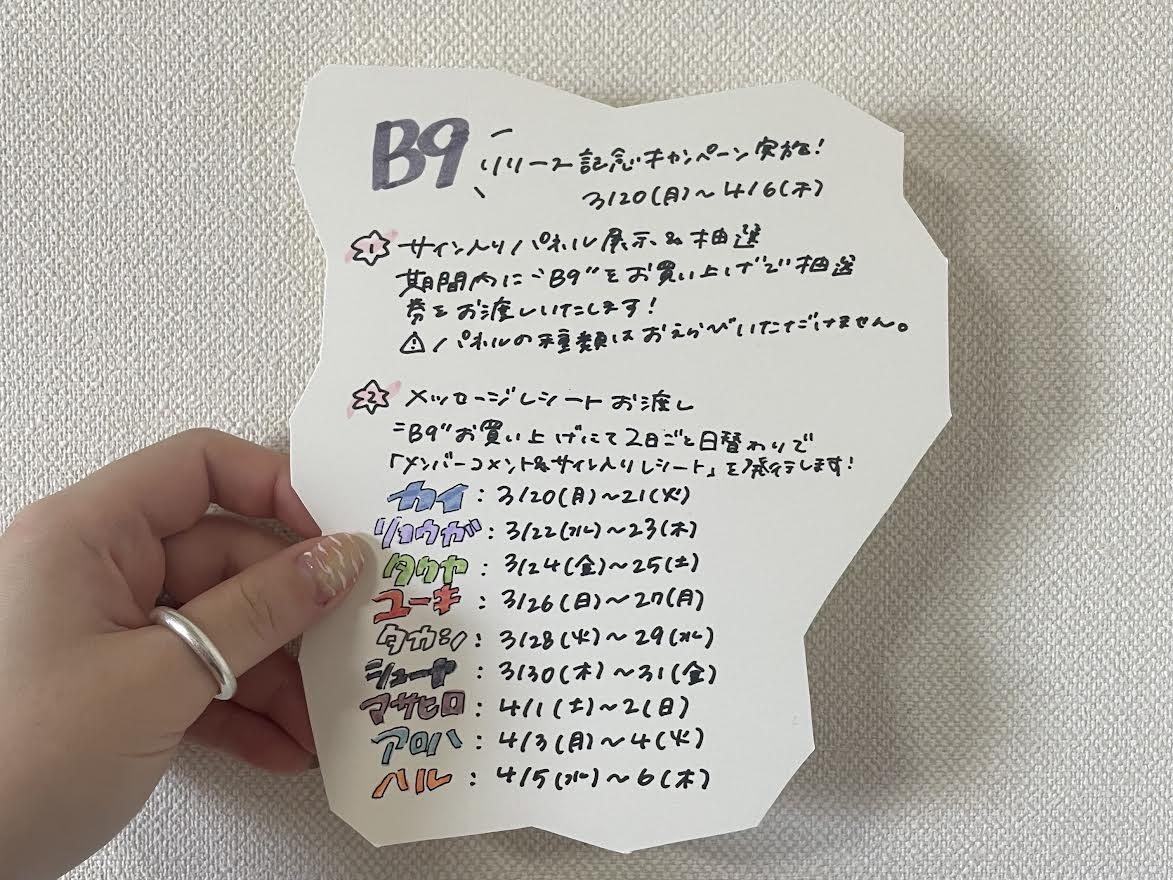 B9 リリース記念キャンペーン実施!
3/20(月)~4/6(木)
1 サイン入りパネル展示&抽選
期間内に"B9"をお買い上げで抽選
券をお渡しいたします!
⚠パネルの種類はおえらびいただけません。
2 メッセージレシートお渡し
"B9"お買い上げにて2日ごと日替わりで
「メンバーコメント&サイン入りレシート」を発行します!
カイ:3/20(月)~21(火)
リョウガ:3/22(水)~23(木)
タクヤ:3/24(金)~25(土)
ユーキ:3/26(日)~27(月)
タカシ:3/28(火)~29(水)
シューヤ:3/30(木)~31(金)
マサヒロ:4/1(土)~2(日)
アロハ:4/3(月)~4(火)
ハル:4/5(水)~6(木)